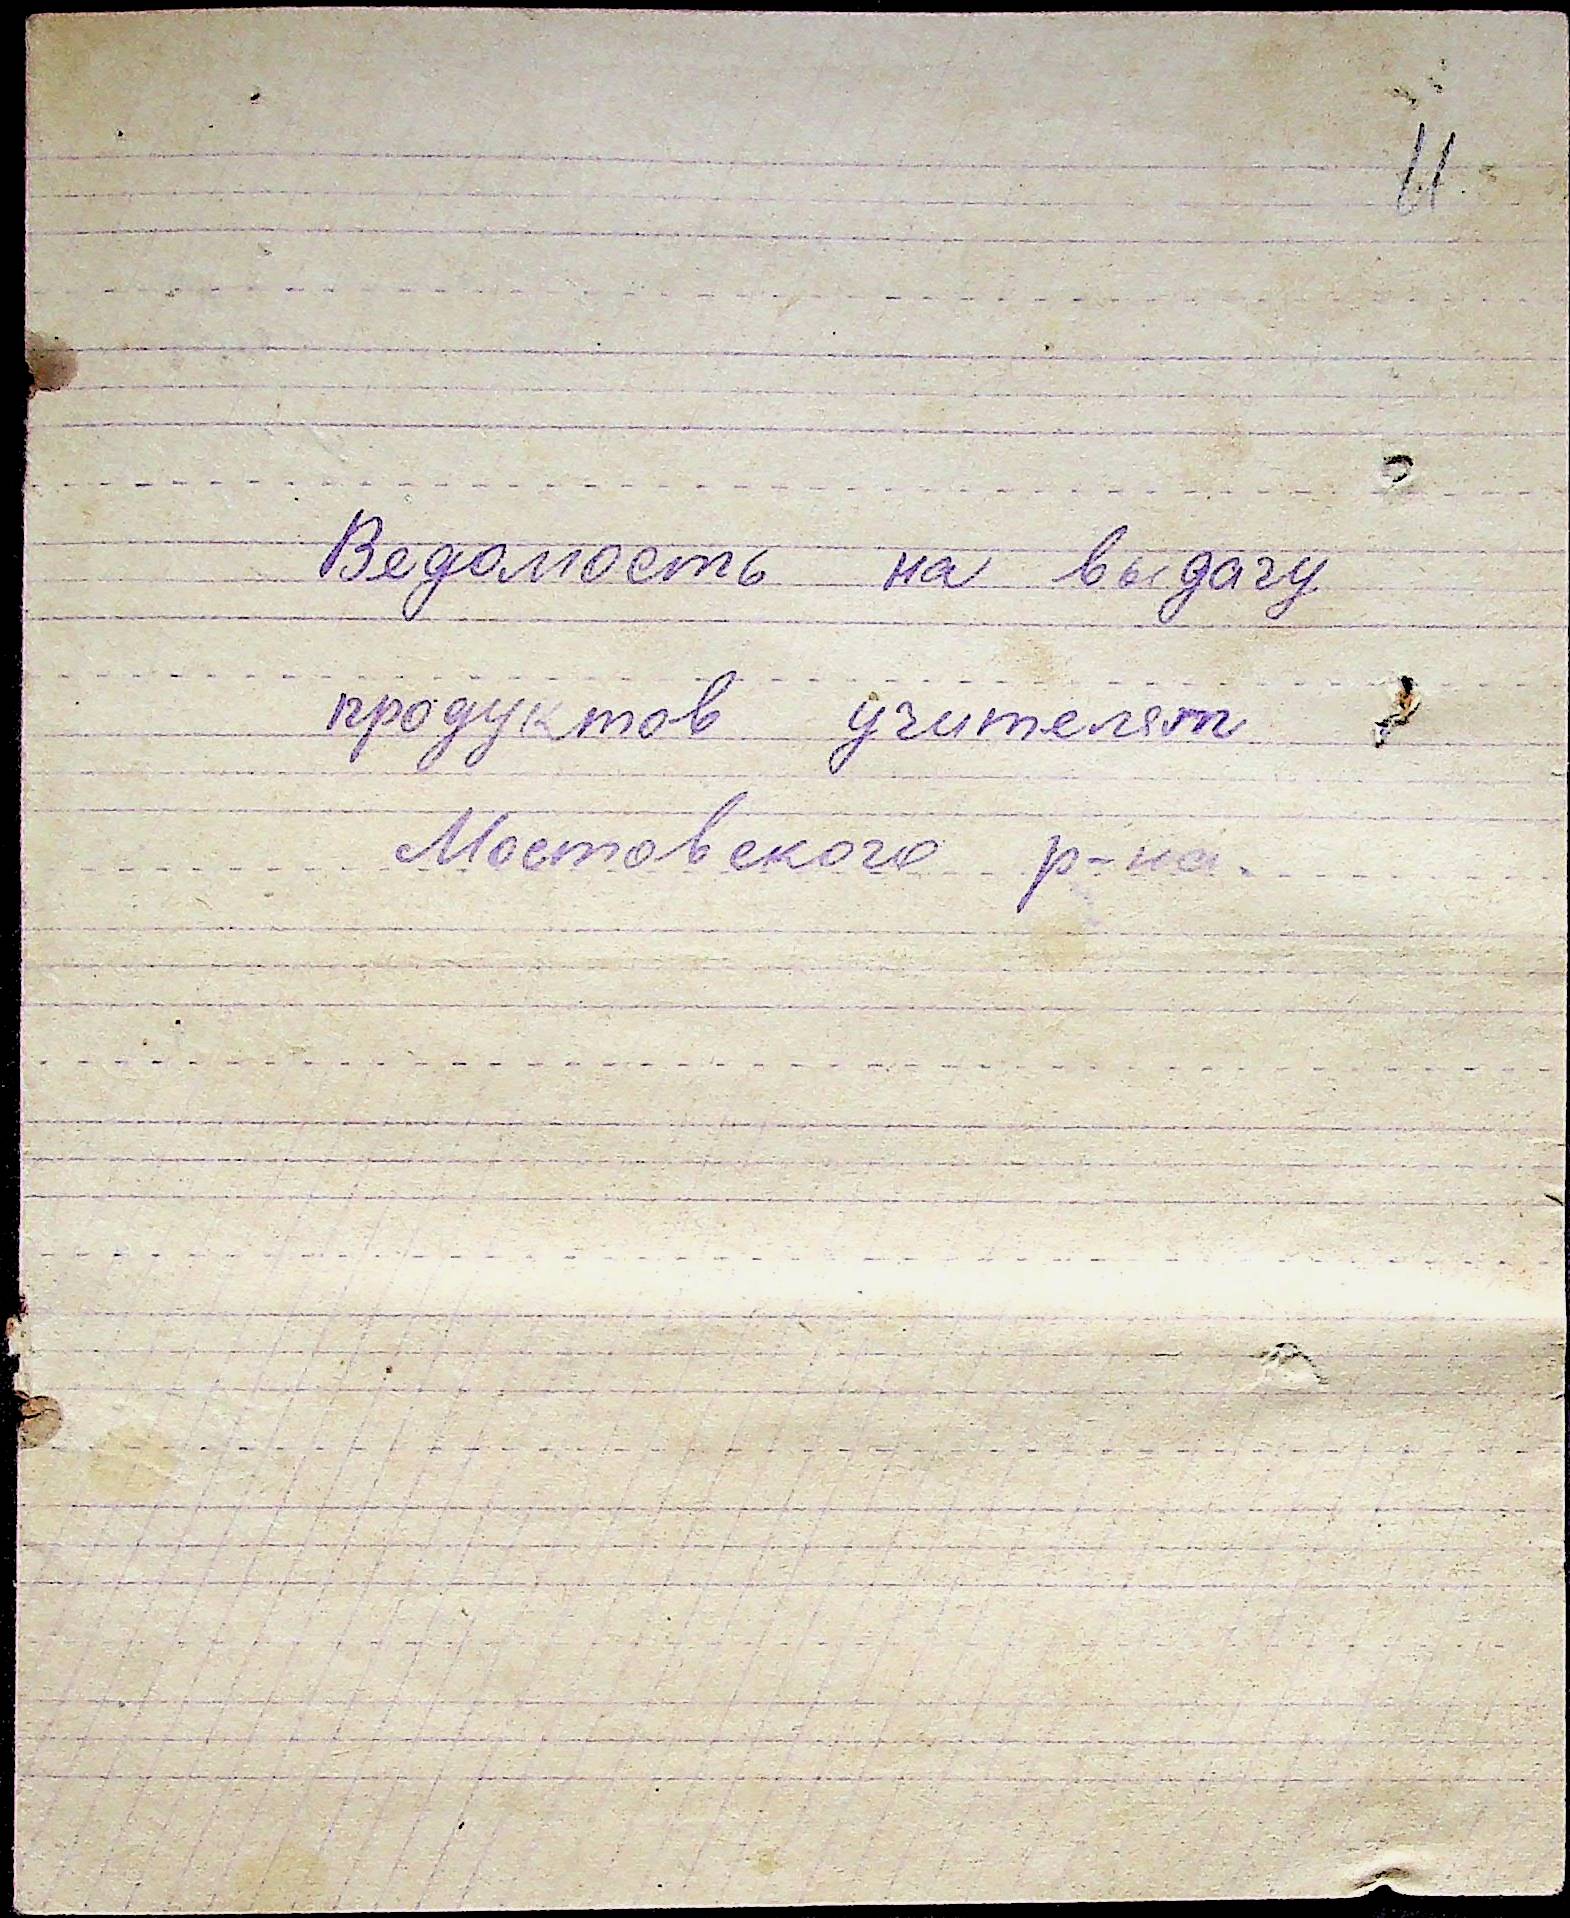 11
Ведомость на выдачу
продуктов учителям
Мостовского р-на.